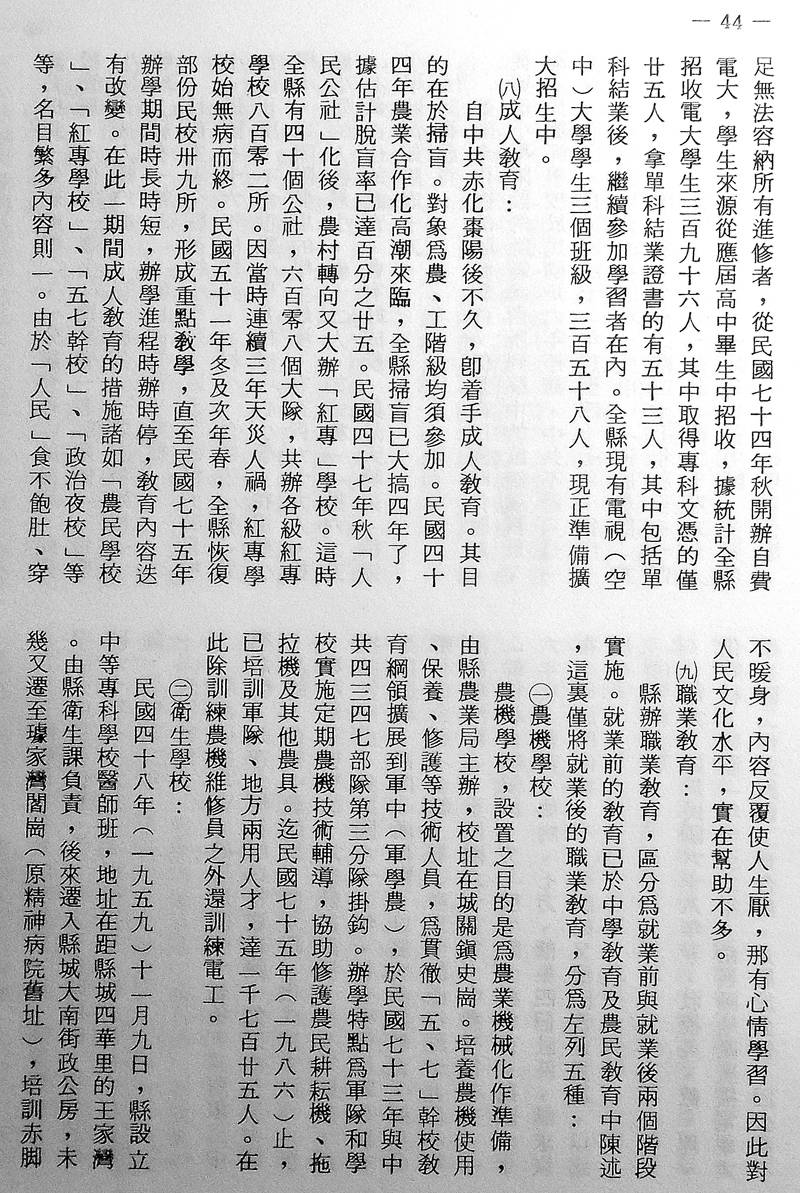 — 44 —
足無法容納所有進修者，從民國七十四年秋開辦自費
電大，學生來源從應屆高中畢生中招收，據統計全縣
招收電大學生三百九十六人，其中取得專科文憑的僅
廿五人，拿單科結業證書的有五十三人，其中包括單
科結業後，繼續參加學習者在內。全縣現有電視（空
中）大學學生三個班級，三百五十八人，現正準備擴
大招生中。
㈧成人敎育：
自中共赤化棗陽後不久，卽着手成人敎育。其目
的在於掃盲。對象爲農、工階級均須參加。民國四十
四年農業合作化高潮來臨，全縣掃盲已大搞四年了，
據估計脫盲率已達百分之廿五。民國四十七年秋「人
民公社」化後，農村轉向又大辦「紅專」學校。這時
全縣有四十個公社，六百零八個大隊，共辦各級紅專
學校八百零二所。因當時連續三年天災人禍，紅專學
校始無病而終。民國五十一年冬及次年春，全縣恢復
部份民校卅九所，形成重點敎學，直至民國七十五年
辦學期間時長時短，辦學進程時辦時停，敎育內容迭
有改變。在此一期間成人敎育的措施諸如「農民學校
」、「紅專學校」、「五七幹校」、「政治夜校」等
等，名目繁多內容則一。由於「人民」食不飽肚、穿
不暖身，內容反覆使人生厭，那有心情學習。因此對
人民文化水平，實在幫助不多。
㈨職業敎育：
縣辦職業敎育，區分爲就業前與就業後兩個階段
實施。就業前的敎育已於中學敎育及農民敎育中陳述
，這裏僅將就業後的職業敎育，分爲左列五種：
㊀農機學校：
農機學校，設置之目的是爲農業機械化作準備，
由縣農業局主辦，校址在城關鎭史崗。培養農機使用
、保養、修護等技術人員，爲貫徹「五、七」幹校敎
育綱領擴展到軍中（軍學農），於民國七十三年與中
共四三四七部隊第三分隊掛鈎。辦學特點爲軍隊和學
校實施定期農機技術輔導，協助修護農民耕耘機、拖
拉機及其他農具。迄民國七十五年（一九八六）止，
已培訓軍隊、地方兩用人才，達一千七百廿五人。在
此除訓練農機維修員之外還訓練電工。
㊁衛生學校：
民國四十八年（一九五九）十一月九日，縣設立
中等專科學校醫師班，地址在距縣城四華里的王家灣
。由縣衛生課負責，後來遷入縣城大南街政公房，未
幾又遷至璩家灣閻崗（原精神病院舊址），培訓赤脚